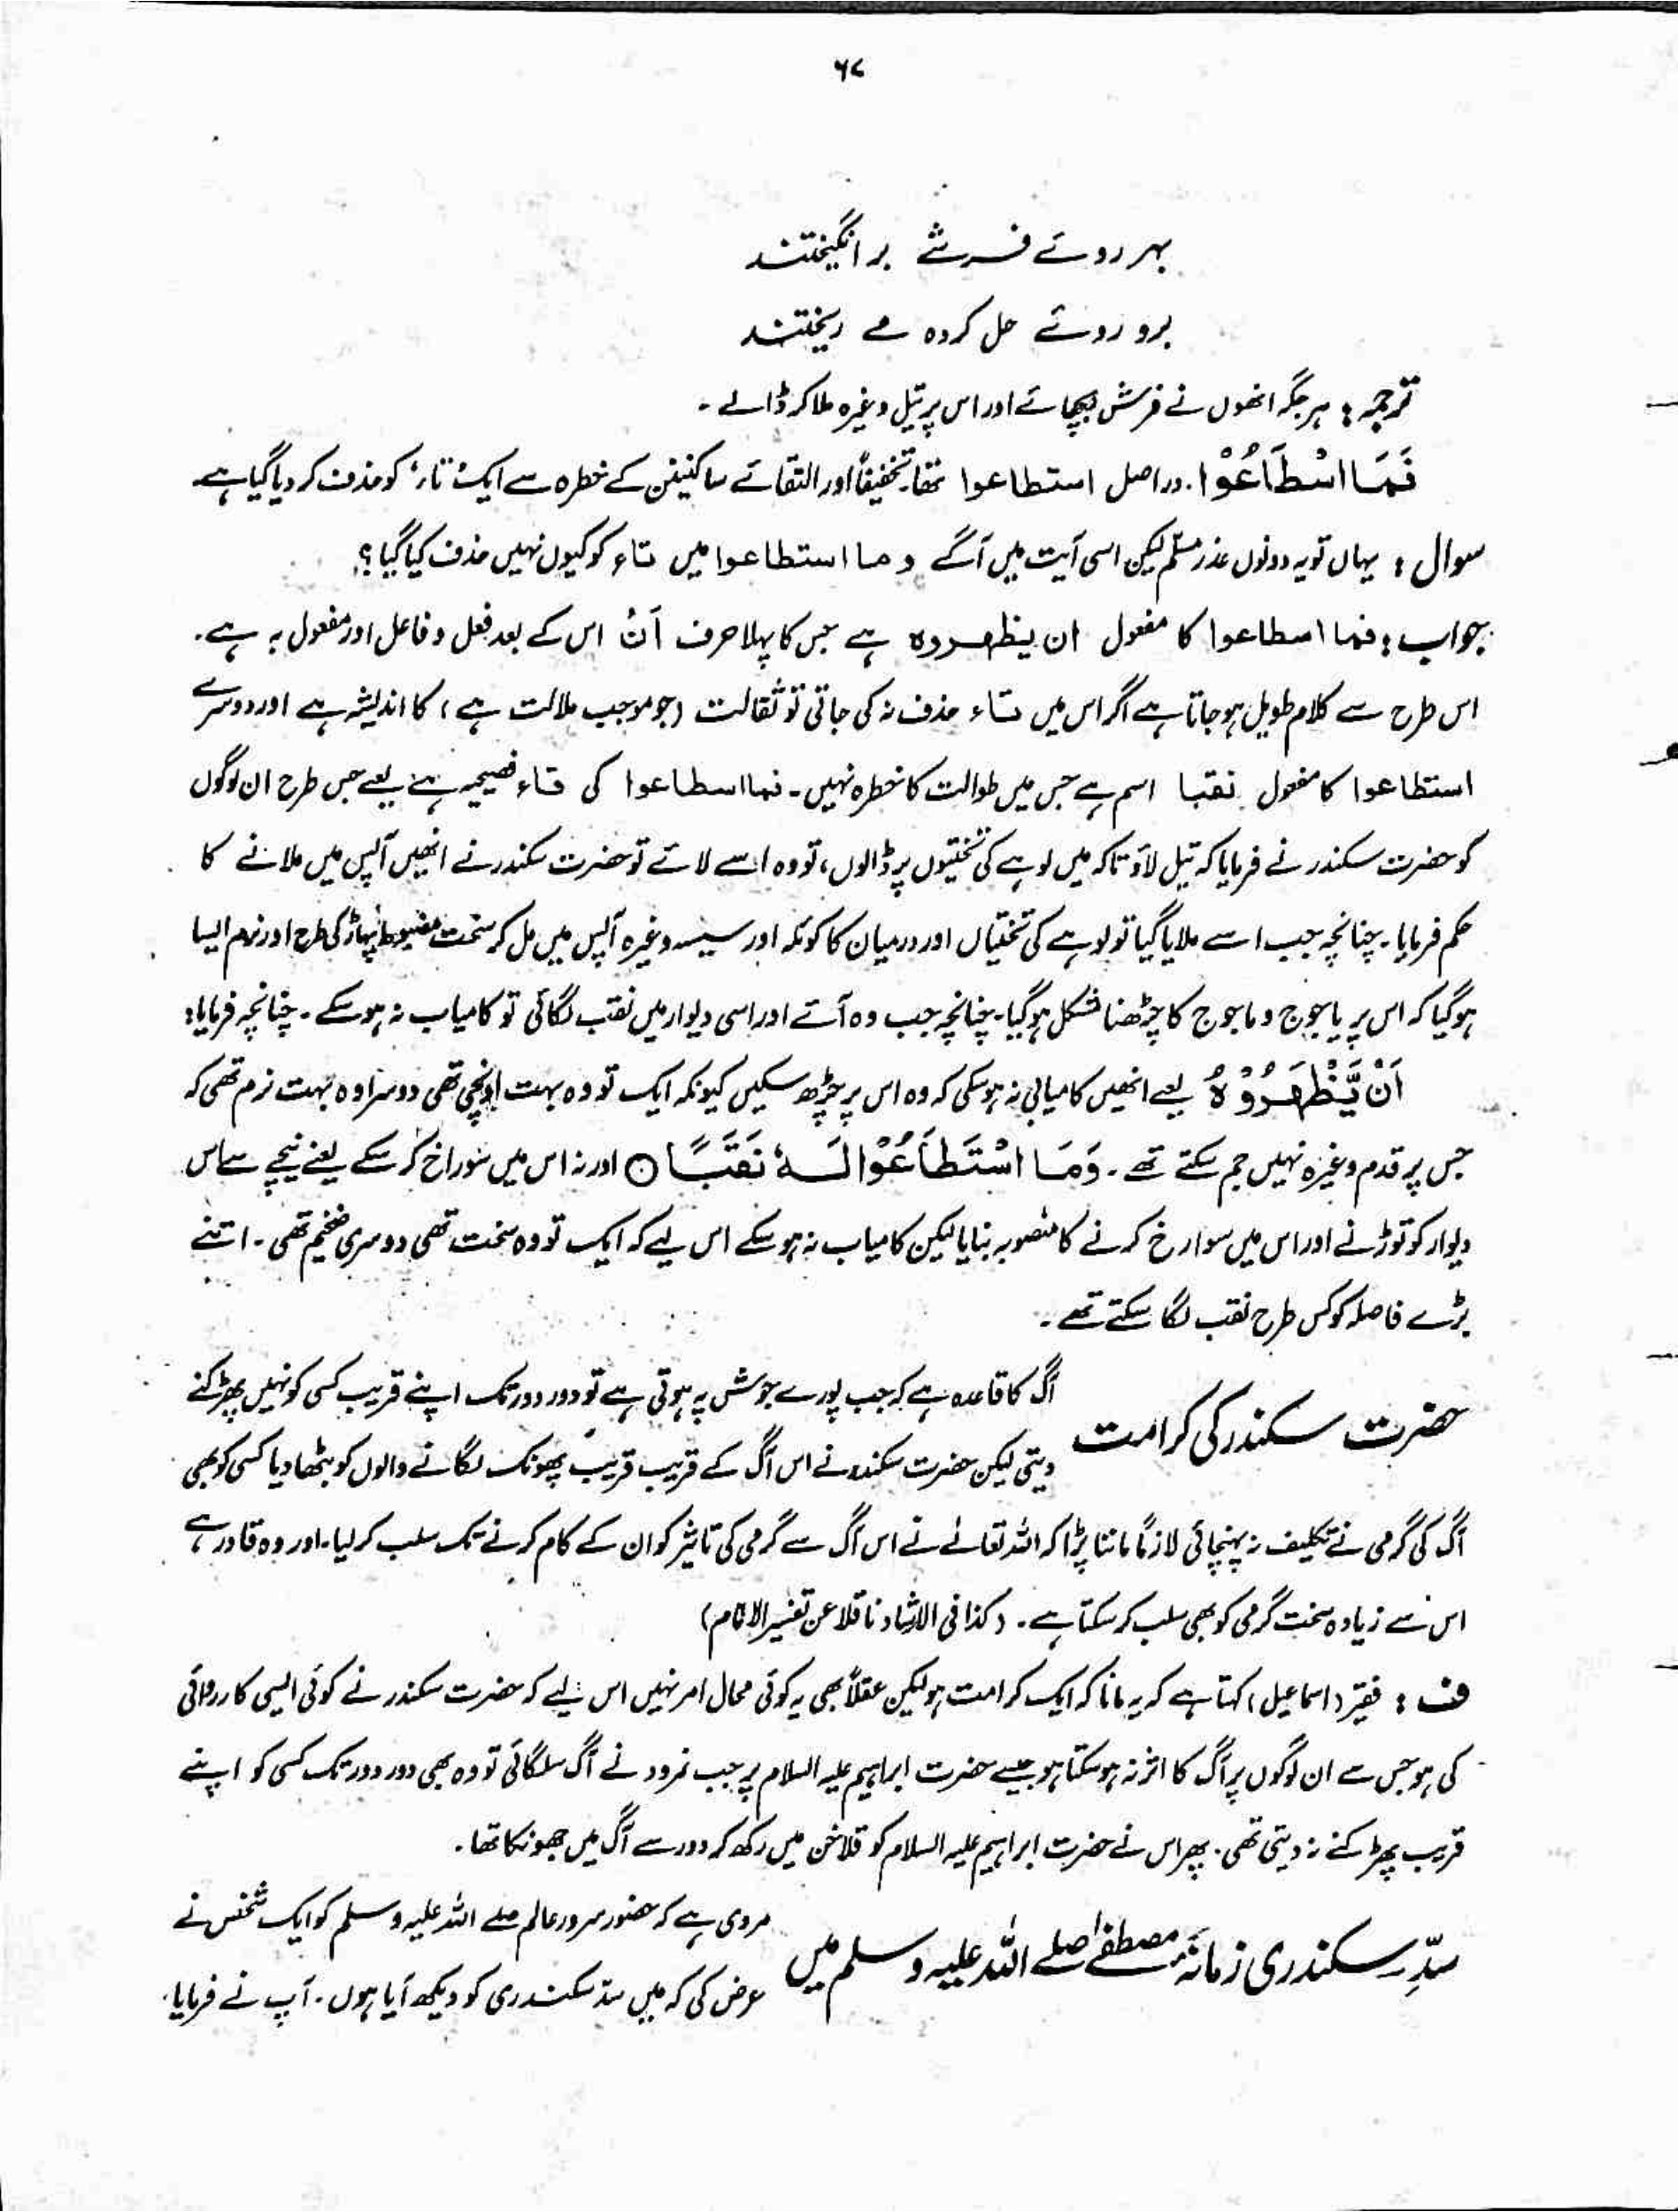 ۶۷
بہر روئے فرشے برانگیختند
برو روئے حل کردہ مے ریختند
ترجمہ : ہر جگہ انھوں نے فرش بچھائے اور اس پر تیل وغیرہ ملا کر ڈالے ۔
فَمَا اسْطَاعُوْا . دراصل استطاعوا تھا۔ تخفیفاً اور التقائے ساکنین کے خطرہ سے ایک تاء کو حذف کر دیا گیا ہے
سوال : یہاں تو یہ دونوں عذر مسلّم لیکن اسی آیت میں آگے وما استطاعوا میں تاء کو کیوں نہیں حذف کیا گیا ؟
جواب : فما اسطاعوا کا مفعول ان یظھروہ ہے جس کا پہلا حرف اَنْ اس کے بعد فعل و فاعل اور مفعول بہ ہے ۔
اس طرح سے کلام طویل ہو جاتا ہے اگر اس میں تاء حذف نہ کی جاتی تو ثقالت (جو موجب ملالت ہے) کا اندیشہ ہے اور دوسرے
استطاعوا کا مفعول نقبا اسم ہے جس میں طوالت کا خطرہ نہیں ۔ فما اسطاعوا کی فاء فصیحیہ ہے یعنے جس طرح ان لوگوں
کو حضرت سکندر نے فرمایا کہ تیل لاؤ تاکہ میں لوہے کی تختیوں پر ڈالوں ، تو وہ اسے لائے تو حضرت سکندر نے انھیں آپس میں ملانے کا
حکم فرمایا ۔ چنانچہ جب اسے ملایا گیا تو لوہے کی تختیاں اور درمیان کا کوئلہ اور سیسہ وغیرہ آپس میں مل کر سخت مضبوط پہاڑ کی طرح اور نرم ایسا
ہو گیا کہ اس پر یاجوج و ماجوج کا چڑھنا مشکل ہو گیا۔ چنانچہ جب وہ آئے اور اسی دیوار میں نقب لگائی تو کامیاب نہ ہو سکے ۔ چنانچہ فرمایا :
اَنْ یَّظْھَرُوْہُ یعنے انھیں کامیابی نہ ہو سکی کہ وہ اس پر چڑھ سکیں کیونکہ ایک تو وہ بہت اونچی تھی دوسرا وہ بہت نرم تھی کہ
جس پر قدم وغیرہ نہیں جم سکتے تھے ۔ وَمَا اسْتَطَاعُوْا لَہٗ نَقْبًا ○ اور نہ اس میں سوراخ کر سکے یعنے نیچے سے اس
دیوار کو توڑنے اور اس میں سوارخ کرنے کا منصوبہ بنایا لیکن کامیاب نہ ہو سکے اس لیے کہ ایک تو وہ سخت تھی دوسری ضخیم تھی ۔ اتنے
بڑے فاصلہ کو کس طرح نقب لگا سکتے تھے ۔
حضرت سکندر کی کرامت
آگ کا قاعدہ ہے کہ جب پورے جوش پہ ہوتی ہے تو دور دور تک اپنے قریب کسی کو نہیں پھڑکنے
دیتی لیکن حضرت سکندر نے اس آگ کے قریب قریب پھونک لگانے والوں کو بٹھا دیا کسی کو بھی
آگ کی گرمی نے تکلیف نہ پہنچائی لازماً ماننا پڑا کہ اللہ تعالےٰ نے اس آگ سے گرمی کی تاثیر کو ان کے کام کرنے تک سلب کر لیا ۔ اور وہ قادر ہے
اس سے زیادہ سخت گرمی کو بھی سلب کر سکتا ہے ۔ (کذا فی الارشاد ناقلا عن تفسیر الامام)
ف : فقیر (اسماعیل) کہتا ہے کہ یہ مانا کہ ایک کرامت ہو لیکن عقلاً بھی یہ کوئی محال امر نہیں اس لیے کہ حضرت سکندر نے کوئی ایسی کارروائی
کی ہو جس سے ان لوگوں پر آگ کا اثر نہ ہو سکتا ہو جیسے حضرت ابراہیم علیہ السلام پر جب نمرود نے آگ سلگائی تو وہ بھی دور دور تک کسی کو اپنے
قریب پھڑکنے نہ دیتی تھی ۔ پھر اس نے حضرت ابراہیم علیہ السلام کو فلاخن میں رکھ کر دور سے آگ میں جھونکا تھا ۔
سدِّ سکندری زمانۂ مصطفےٰ صلے اللہ علیہ وسلم میں
مروی ہے کہ حضور سرور عالم صلے اللہ علیہ وسلم کو ایک شخص نے
عرض کی کہ میں سد سکندری کو دیکھ آیا ہوں ۔ آپ نے فرمایا